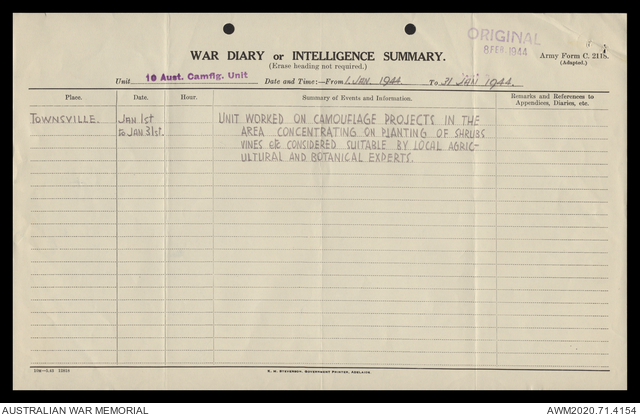 ORIGINAL
8 FEB 1944
WAR DIARY or INTELLIGENCE SUMMARY.
(Erase heading not required.)
Army Form C. 2118.
(Adapted.)
Unit 10 Aust. Camflg. Unit Date and Time:—From 1. JAN. 1944. To 31 JAN 1944.
Place. Date. Hour. Summary of Events and Information. Remarks and References to Appendices, Diaries, etc.
TOWNSVILLE. JAN 1st UNIT WORKED ON CAMOUFLAGE PROJECTS IN THE
to JAN 31st. AREA CONCENTRATING ON PLANTING OF SHRUBS
VINES etc CONSIDERED SUITABLE BY LOCAL AGRIC-
ULTURAL AND BOTANICAL EXPERTS.
AUSTRALIAN WAR MEMORIAL
AWM2020.71.4154